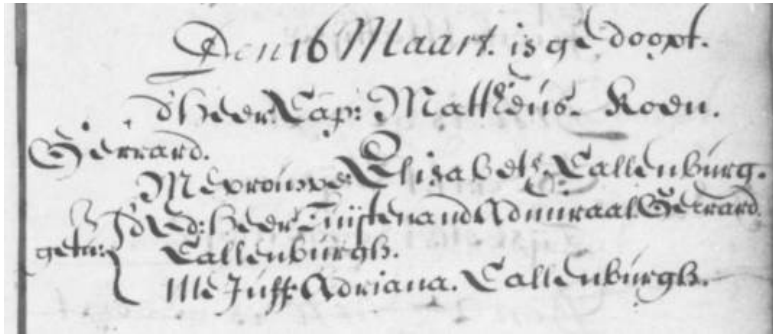 Den 16 Maart. is gedoopt.
d'heer Cap: Mattheus. Koen.
Gerrard.
Mevrouwe Elisabeth. Callenburg.
d'Ed: heer Luijtenand Admiraal Gerrard
getu: Callenburgh.
Me Juff: Adriana. Callenburgh.